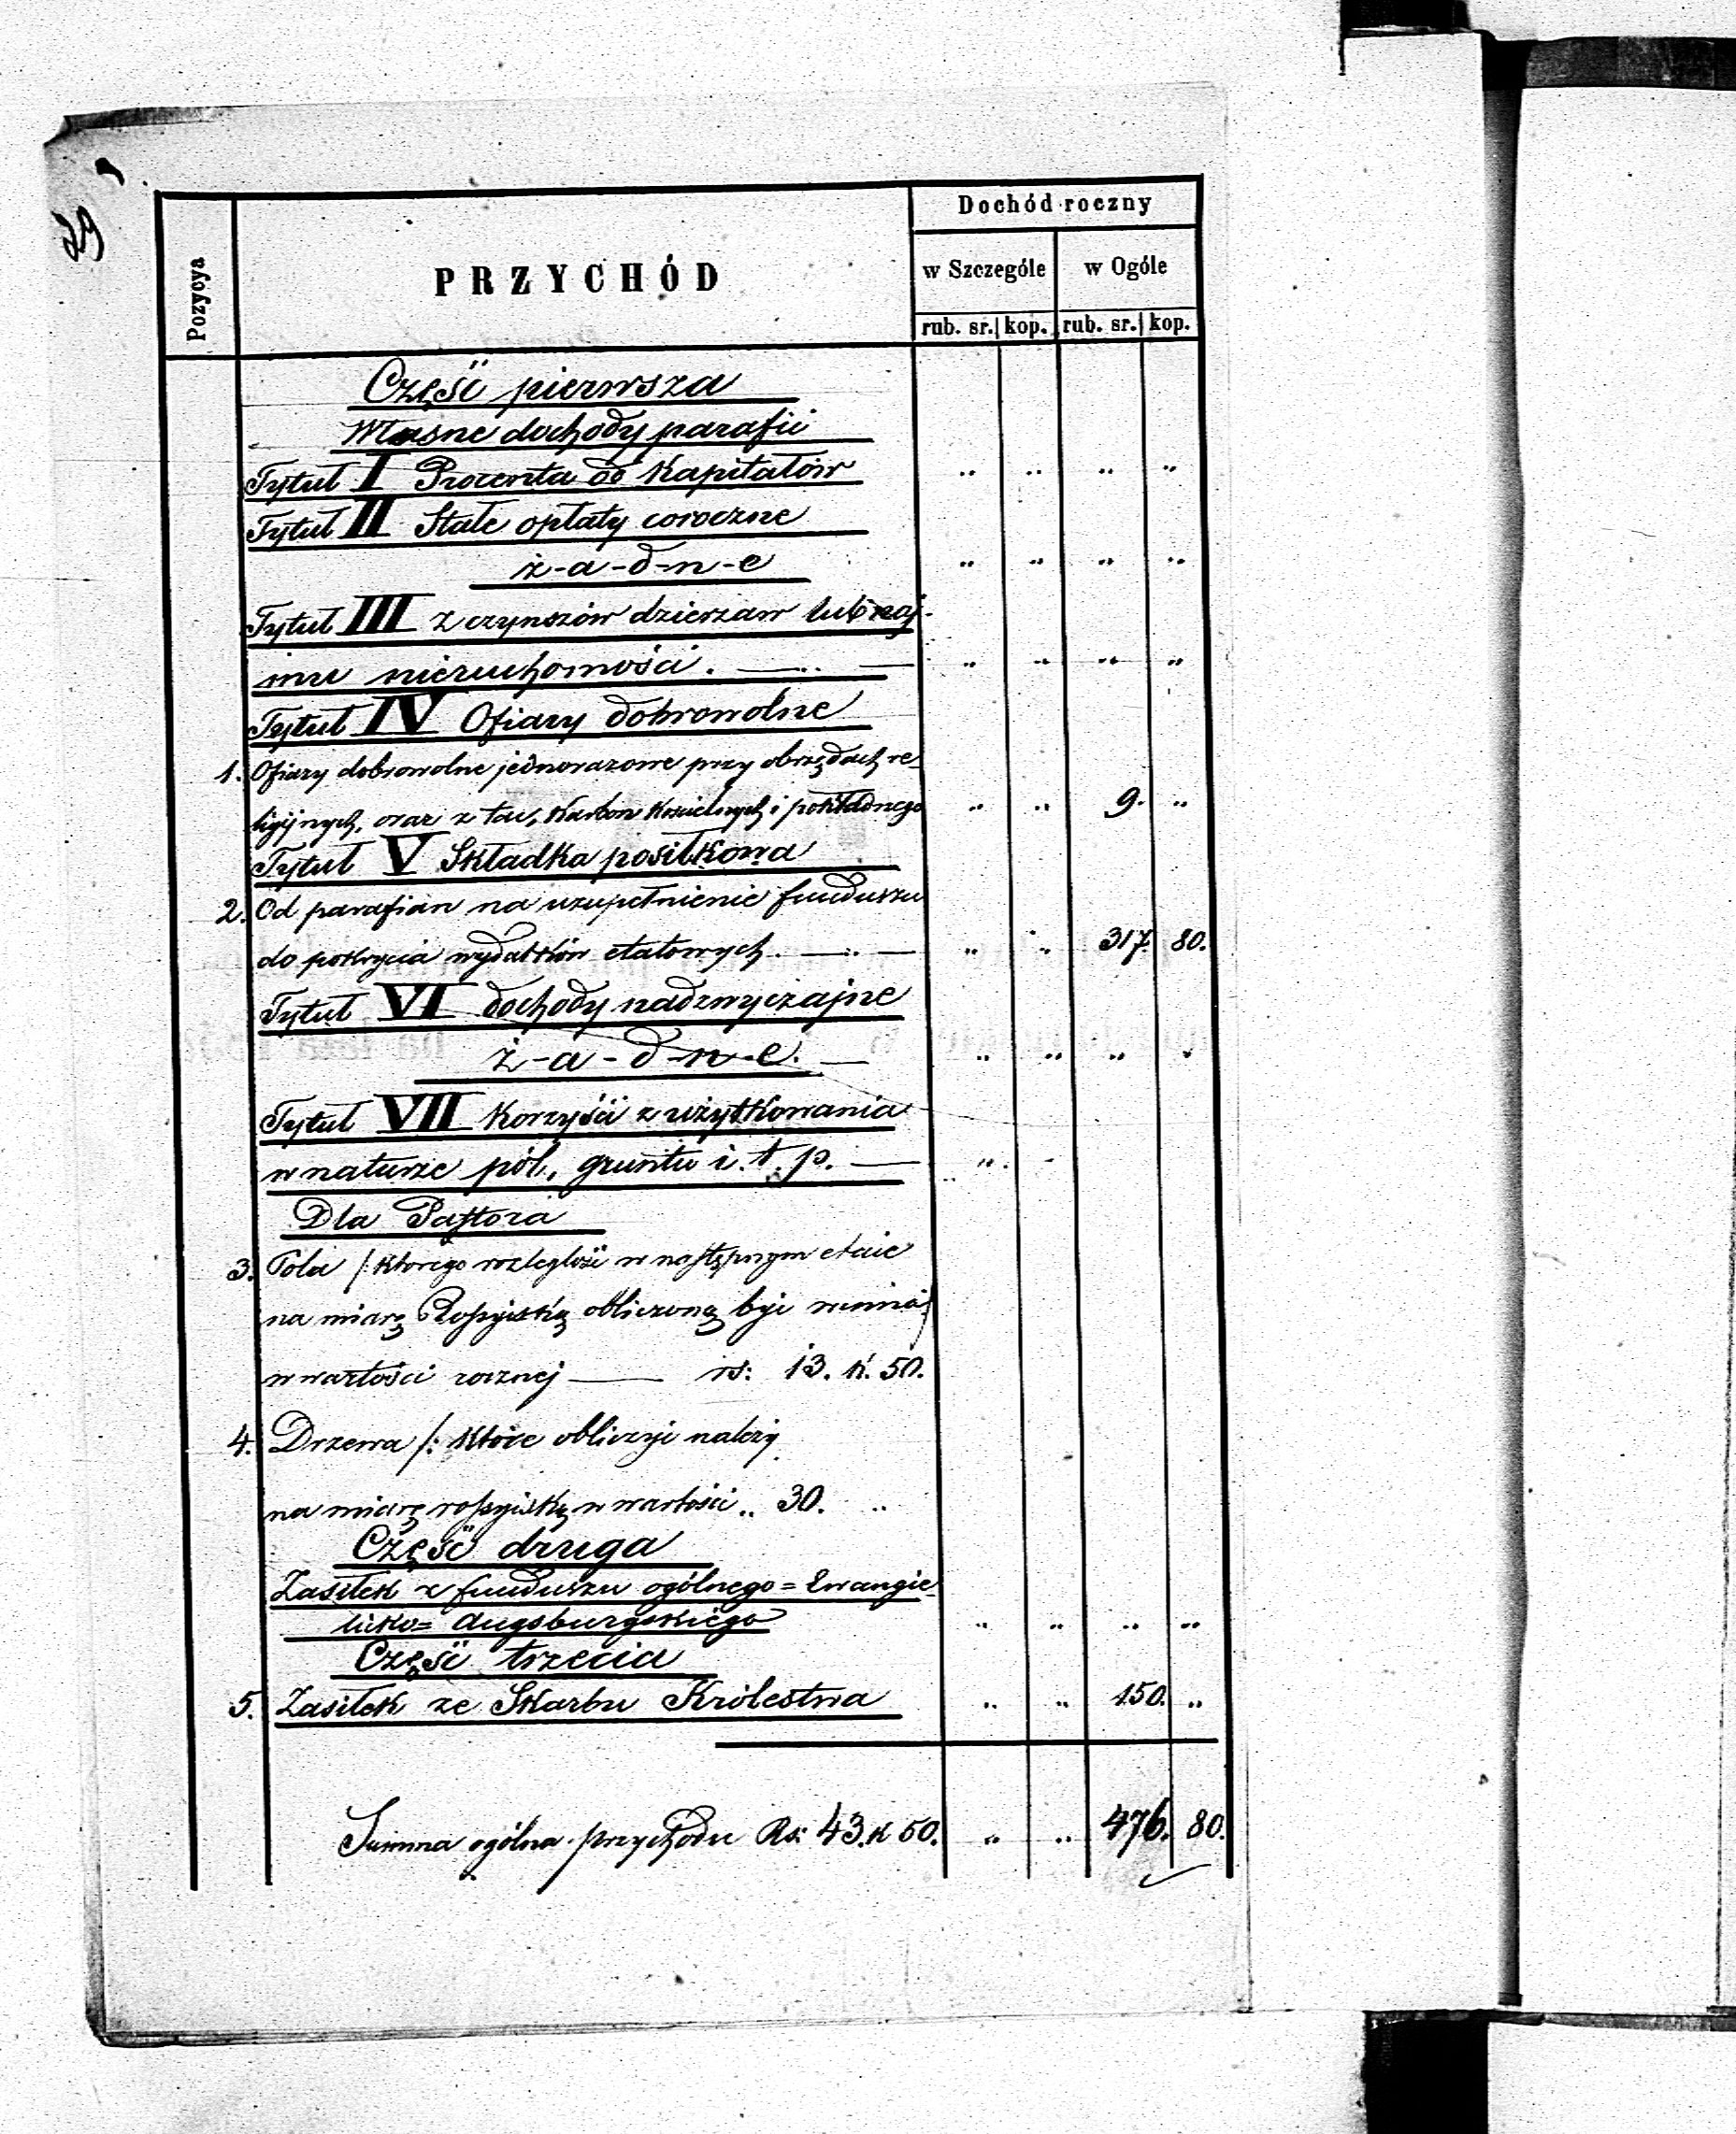 Dochód roczny
Pozycya
PRZYCHÓD
w Szczególe w Ogóle
rub. sr. kop. rub. sr. kop.
Część pierwsza
Własne dochody parafii
Tytuł I Procenta od Kapitałów " " " "
Tytuł II Stałe opłaty coroczne
ż-a-d-n-e " " " "
Tytuł III z czynszów dzierzaw lub naj-
mu nieruchomości. — " — " " " "
Tytuł IV Ofiary dobrowolne
1. Ofiary dobrowolne jednorazowe przy obrzędach re-
ligijnych, oraz z tac, Karbon Kościelnych i pokładnego " " 9. "
Tytuł V Składka posiłkowa
2. Od parafian na uzupełnienie funduszu
do pokrycia wydatków etatowych. — " — " " 317. 80.
Tytuł VI dochody nadzwyczajne
ż-a-d-n-e. — " " " "
Tytuł VII Korzyści z użytkowania
w naturze pól, gruntu i. t. p. — "
Dla Pastora
3. Pola /: Ktorego rozległość w następnym etacie
na miarę Rossyjską obliczoną być winna :/
w wartości rocznej — rs: 13. k. 50.
4. Drzewa /: Które obliczyć należy
na miarę rossyjską w wartości " 30. "
Część druga
Zasiłek z funduszu ogólnego = Ewangie-
licko = Augsburgskiego " " " "
Część trzecia
5. Zasiłek ze Skarbu Królestwa " " 150. "
Summa ogólna przychodu Rs: 43. k 50. " " 476. 80.